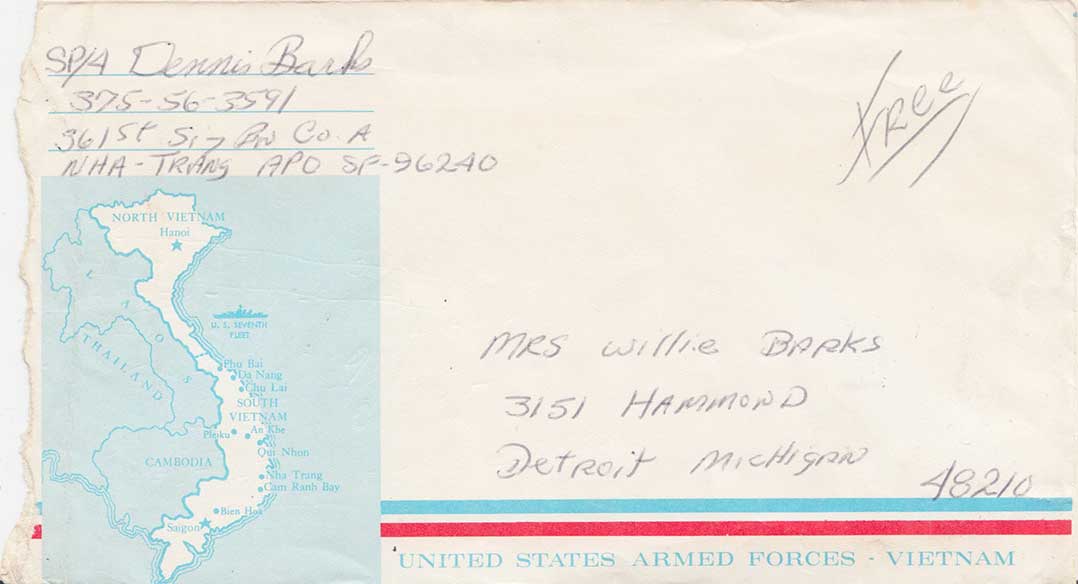 SP/4 Dennis Barks
375-56-3591
361st Sig Bn Co. A
NHA-TRANG APO SF-96240
Free
NORTH VIETNAM
Hanoi
LAOS
U. S. SEVENTH
FLEET
THAILAND
Phu Bai
Da Nang
Chu Lai
SOUTH
VIETNAM
Pleiku An Khe
Qui Nhon
CAMBODIA
Nha Trang
Cam Ranh Bay
Bien Hoa
Saigon
MRS Willie BARKS
3151 HAMMOND
Detroit MICHIGAN
48210
UNITED STATES ARMED FORCES - VIETNAM